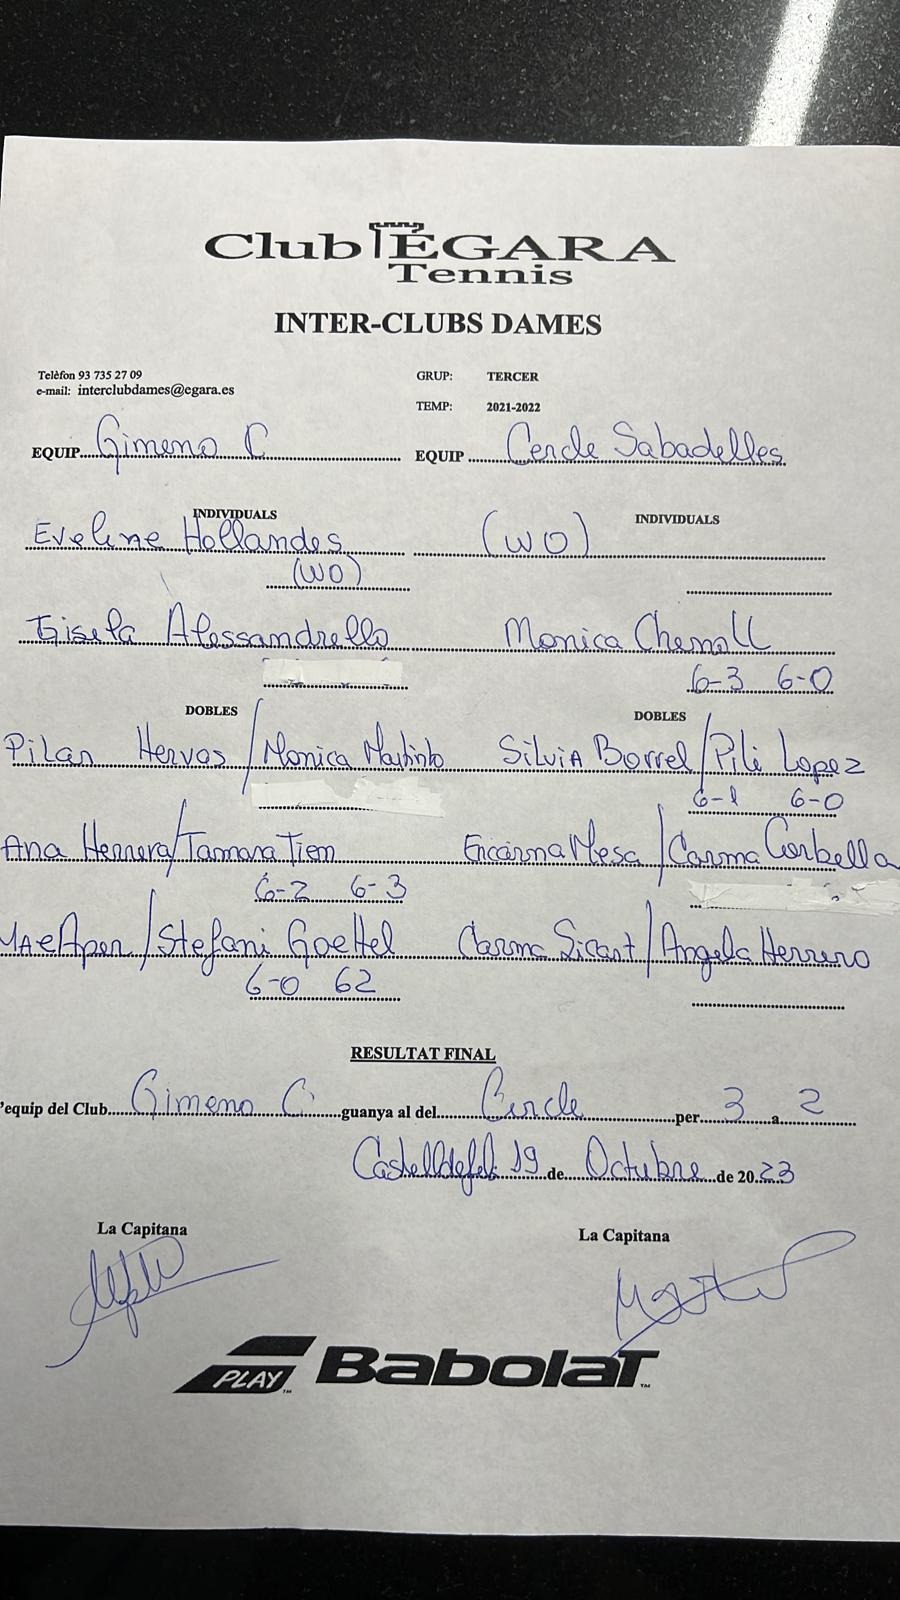 Club EGARA
Tennis
INTER-CLUBS DAMES
Telèfon 93 735 27 09
e-mail: interclubdames@egara.es
GRUP: TERCER
TEMP: 2021-2022
EQUIP Gimeno C
EQUIP Cercle Sabadelles
INDIVIDUALS
INDIVIDUALS
Eveline Hollandes
(WO)
(WO)
Gisela Alessandrello
Monica Chemoll
6-3 6-0
DOBLES
DOBLES
Pilar Hervos / Monica
Silvia Borrel / Pili Lopez
6-1 6-0
Ana Herrera / Tamara Tiem
Encarna Mesa / Carma Corbella
6-2 6-3
/ Stefani Goettel
Carma Sicart / Angela Herrero
6-0 62
RESULTAT FINAL
'equip del Club Gimeno C guanya al del Cercle per 3 a 2
19 de Octubre de 2023
La Capitana
La Capitana
PLAY Babolat